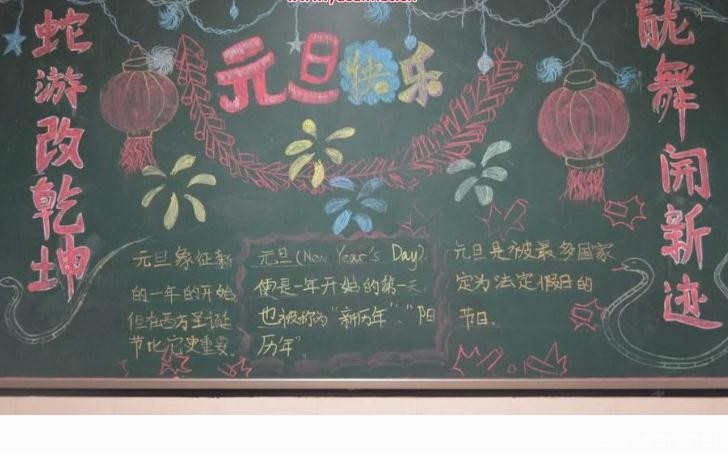 元旦快乐
蛇游改乾坤
舞开新迹
元旦象征新
的一年的开始
但在西方圣诞
节比它更重要.
元旦(New Year's Day)
便是一年开始的第一天
也被称为"新历年"."阳
历年"
元旦是被最多国家
定为法定假日的
节日.